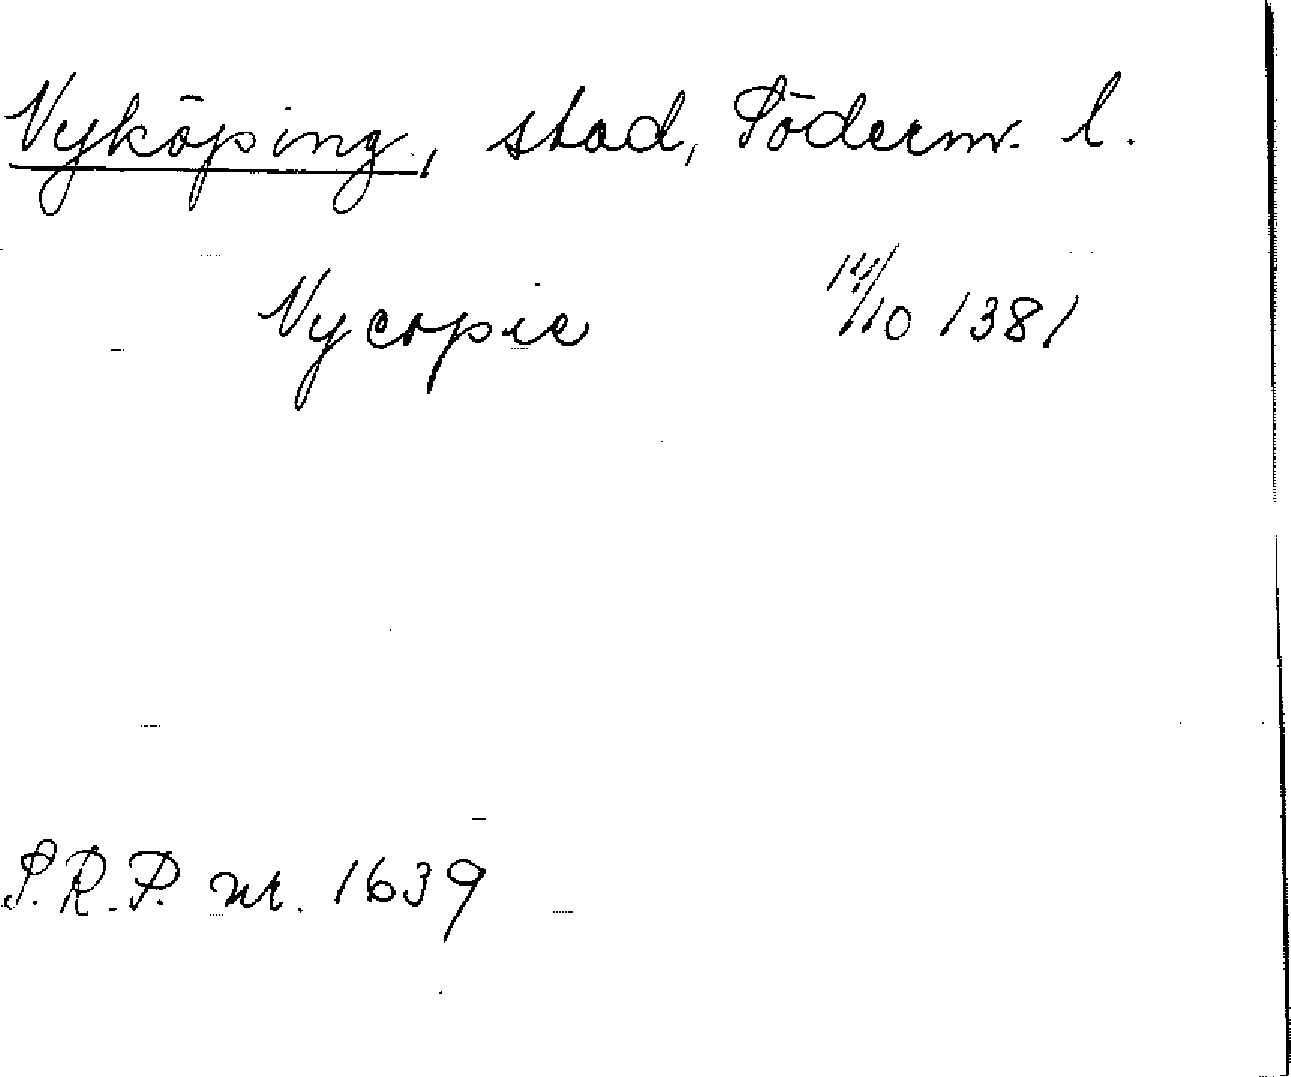 Nyköping, stad, Söderm. l.
Nycopie 14/10 1381
S.R.P. nr. 1639